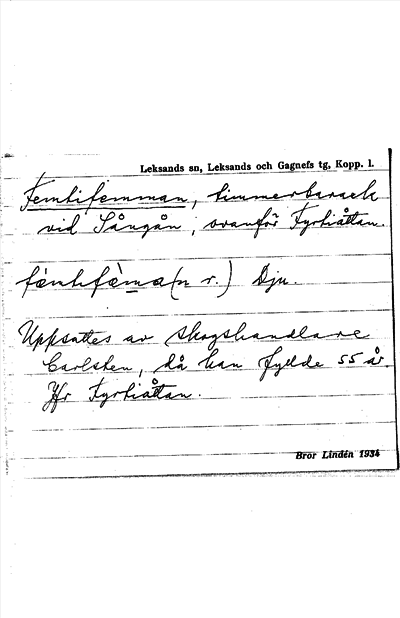 Leksands sn, Leksands och Gagnefs tg, Kopp. l.
Femtifemman, timmerbarack
vid Sångån, ovanför Fyrtiåttan.
fèmtifèma (n r.) Dju.
Uppsattes av skogshandlare
Carlsten, då han fyllde 55 år.
Jfr Fyrtiåttan.
Bror Lindén 1934